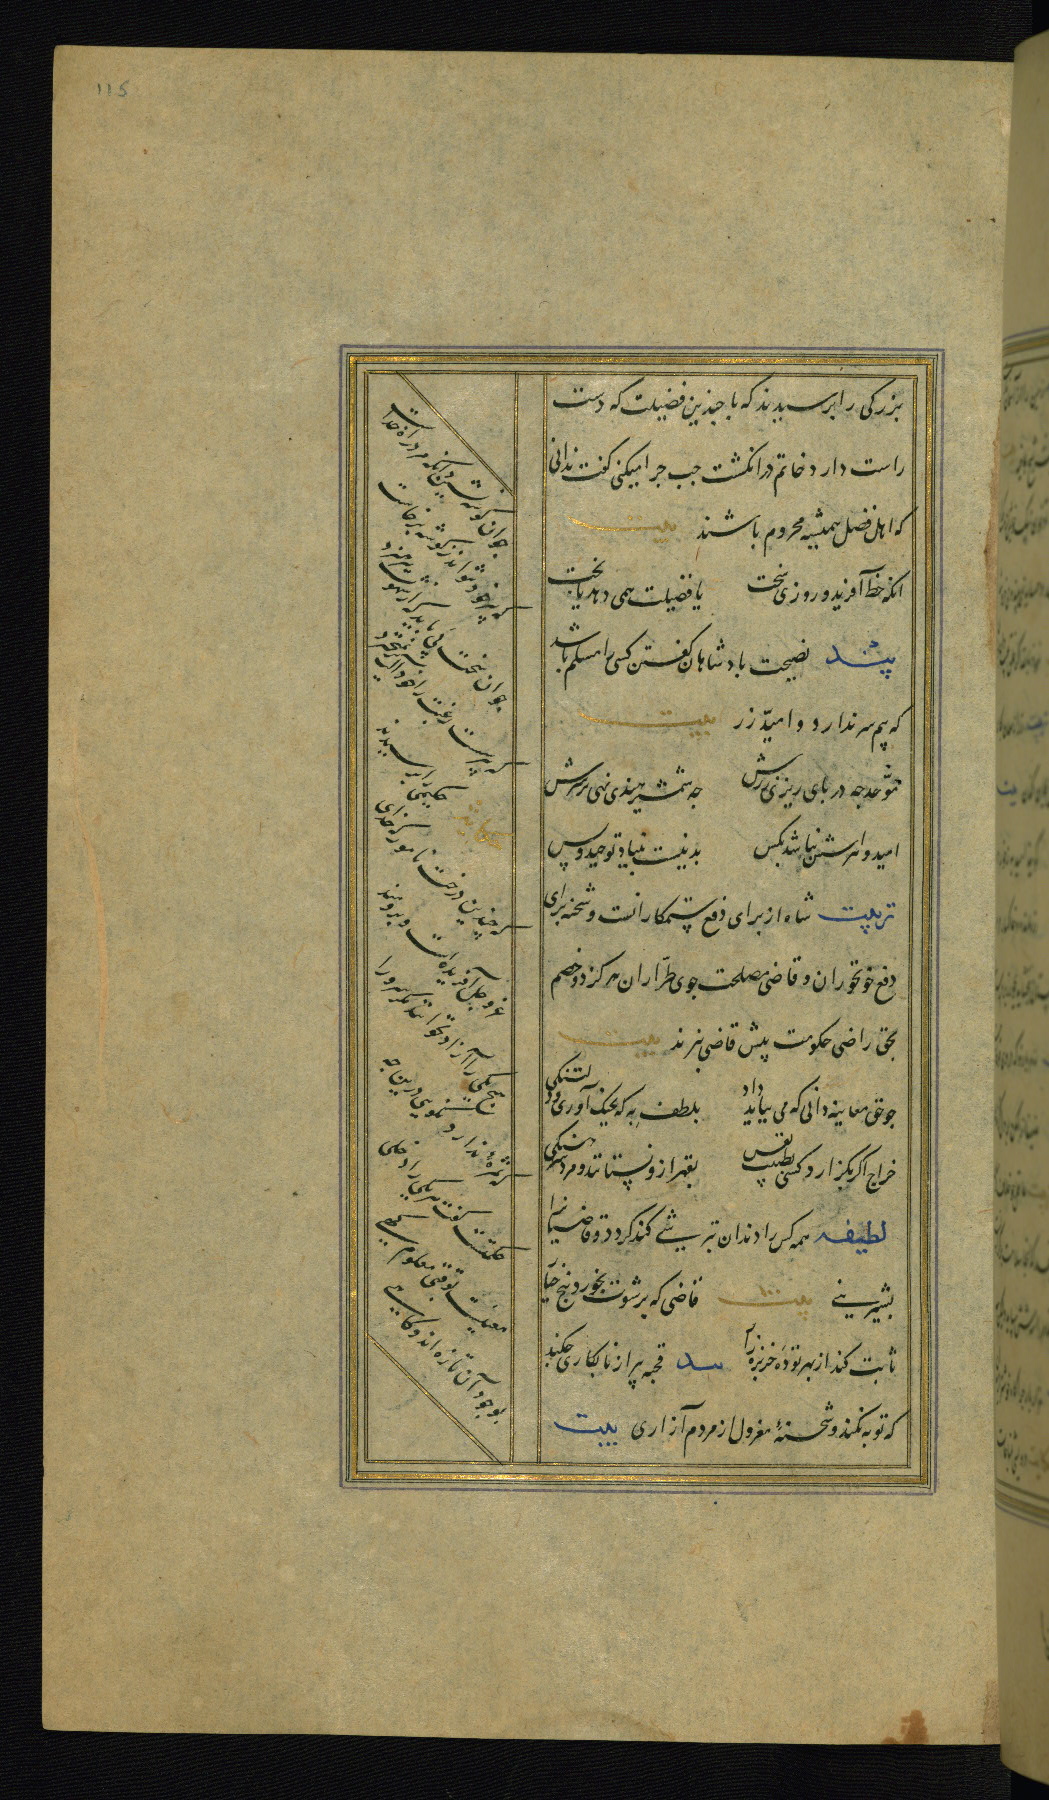 115
بزرکی را پرسیدند که با چندین فضیلت که دست
راست دارد خاتم در انکشت چپ چرا میکنی کفت ندانی
که اهل فضل همیشه محروم باشند بیت
انکه حظ آفرید و روزی سخت یا فضیلت همی دهد یا بخت
پند نصیحت بادشاهان کفتن کسی را مسلم باشد
که بیم سر ندارد و امید زر بیت
موحد چه در پای ریزی زرش چه شمشیر هندی نهی بر سرش
امید و هراسش نباشد ز کس بدینست بنیاد توحید و بس
تربیت شاه از برای دفع ستمکارانست و شحنه برای
دفع خونخوران و قاضی مصلحت جوی طراران هرکز دو خصم
بحق راضی حکومت پیش قاضی نبرند بیت
چو حق معاینه دانی که می بباید داد بلطف به که بجنک آوری و دلتنکی
خراج اکر نکزارد کسی بطیب نفس بقهر ازو بستانند و مرد سرهنکی
لطیفه همه کس را دندان بترشی کند کردد و قاضیانرا
بشیرینی بیت قاضی که برشوت بخورد پنج خیار
ثابت کند از بهر تو ده خربزه زار پند قحبه پیر از نابکاری چکند
که توبه نکند و شحنۀ معزول از مردم آزاری بیت
جوان کوشه نشین شیر مرد راه خداست
که پیر خود نتواند ز کوشه برخاست
جوان سخت می باید که از شهوت بپرهیزد
که پیر سست رغبت را خود آلت برنمیخیزد
حکایت حکیمی را پرسیدند
که چندین درخت نامور که خدای
عز و جل آفریده است و برومند
هیچ یکی را آزاد نخوانند مکر سرو را
که ثمرۀ ندارد درین چه
حکمتست کفت هر یکی را دخلی
معینست بوقتی معلوم کهی
بوجود آن تازه اند و کاهی